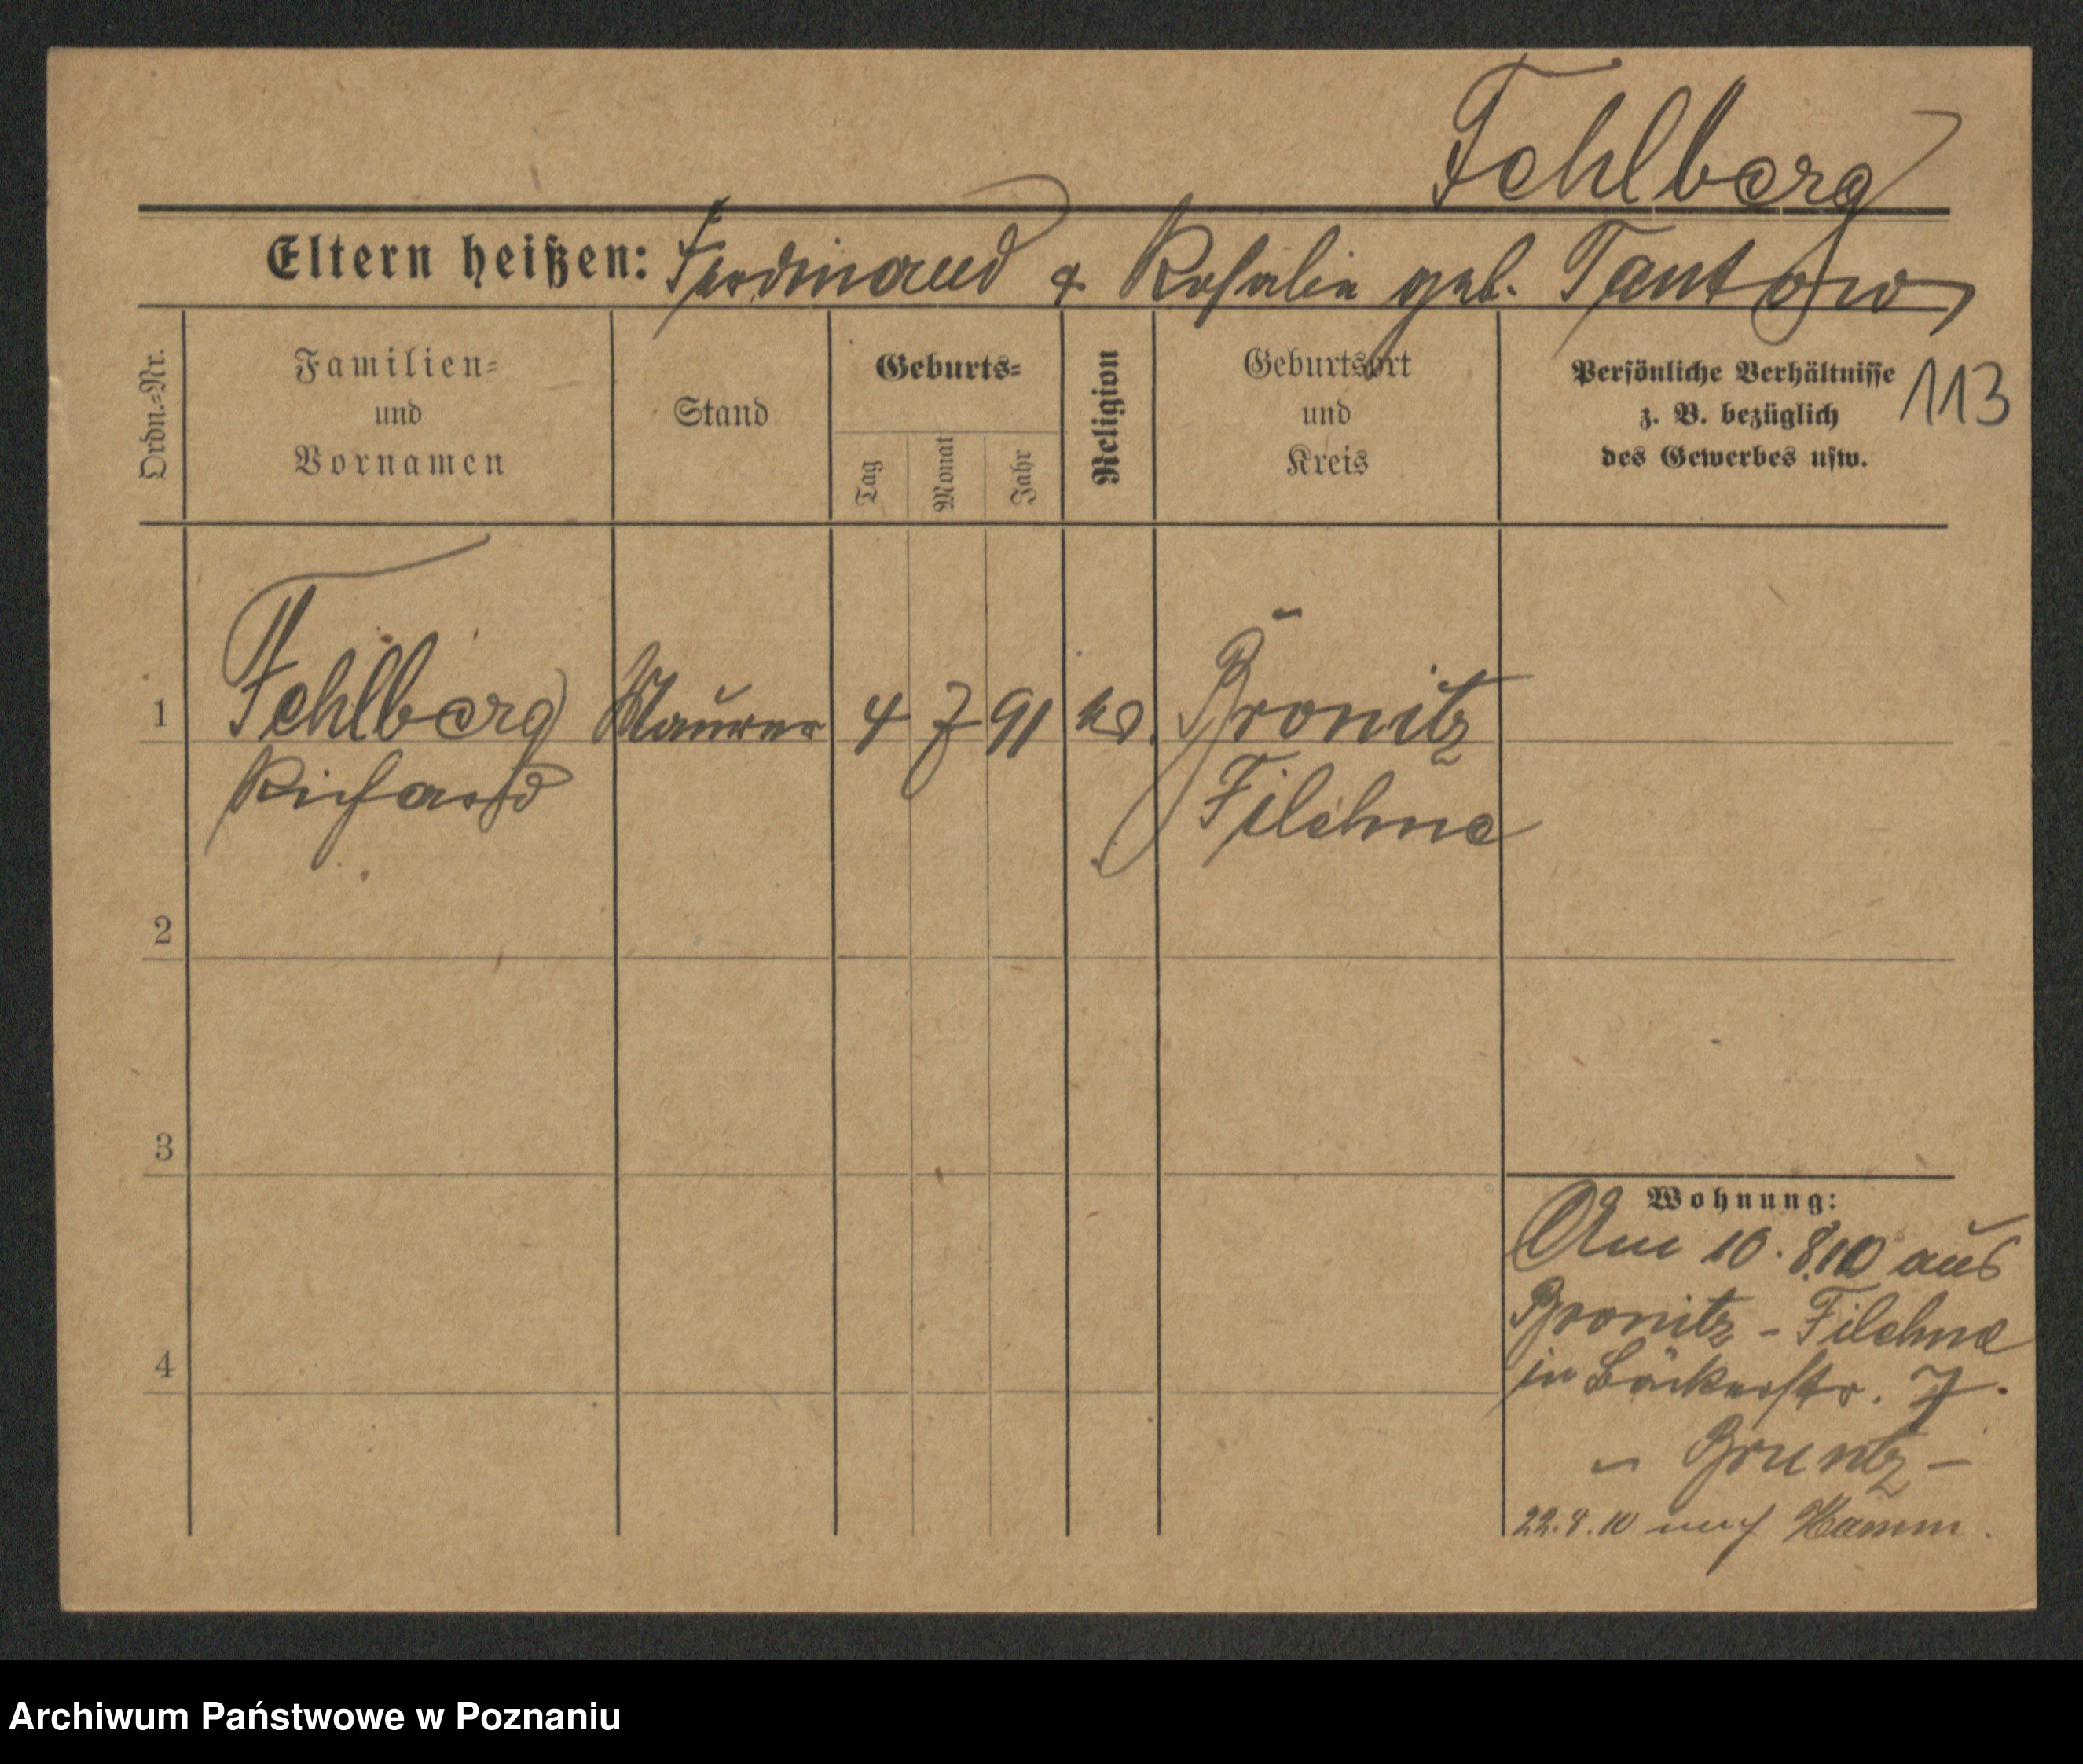 Fehlberg
Eltern heißen: Ferdinand & Rosalie geb. Tantow
Ordn.=Nr.
Familien=
und
Vornamen
Stand
Geburts=
Tag
Monat
Jahr
Religion
Geburtsort
und
Kreis
Persönliche Verhältnisse
z. B. bezüglich
des Gewerbes usw.
113
1 Fehlberg Maurer 4 7 91 Gronitz
Richard Filehne
2
3
4
Wohnung:
Am 10. 8.10 aus
Gronitz - Filehne
in Bäckerstr. 7.
22.8.10 nach Hamm.
Archiwum Państwowe w Poznaniu